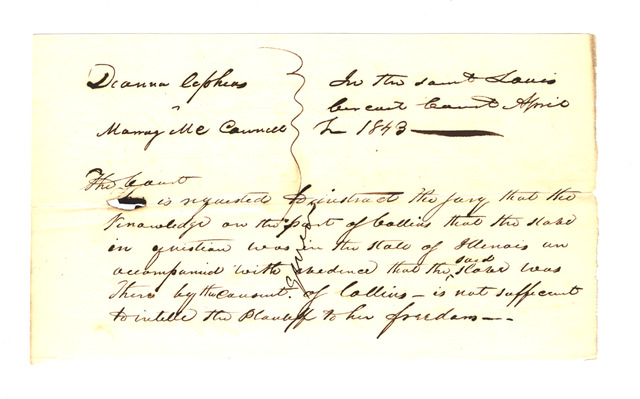 Deanna Cephas
v
Murray Mc Connell
In the saint Louis
Circuit Court April
T 1843
The Court
is requested to instruct the jury that the
Knowledge on the part of Collins that the slave
in question was in the state of Illenois un
accompanied with evedence that the said slave was
there by the consent of Collins — is not sufficient
to intitle the Plantiff to her freedom —
Given